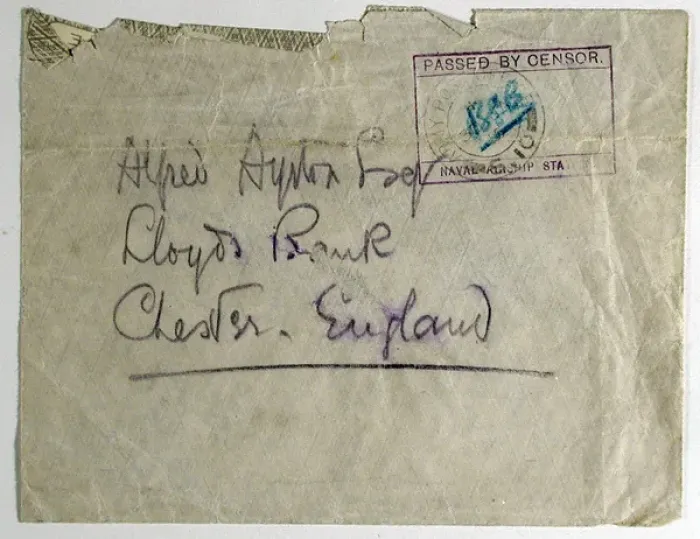 PASSED BY CENSOR.
NAVAL AIRSHIP STA
Alfred Ayrton Esq
Lloyds Bank
Chester. England